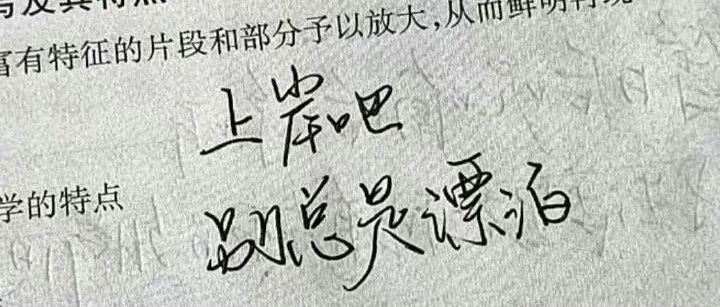 富有特征的片段和部分予以放大,从而鲜明
上岸吧
学的特点
别总是漂泊